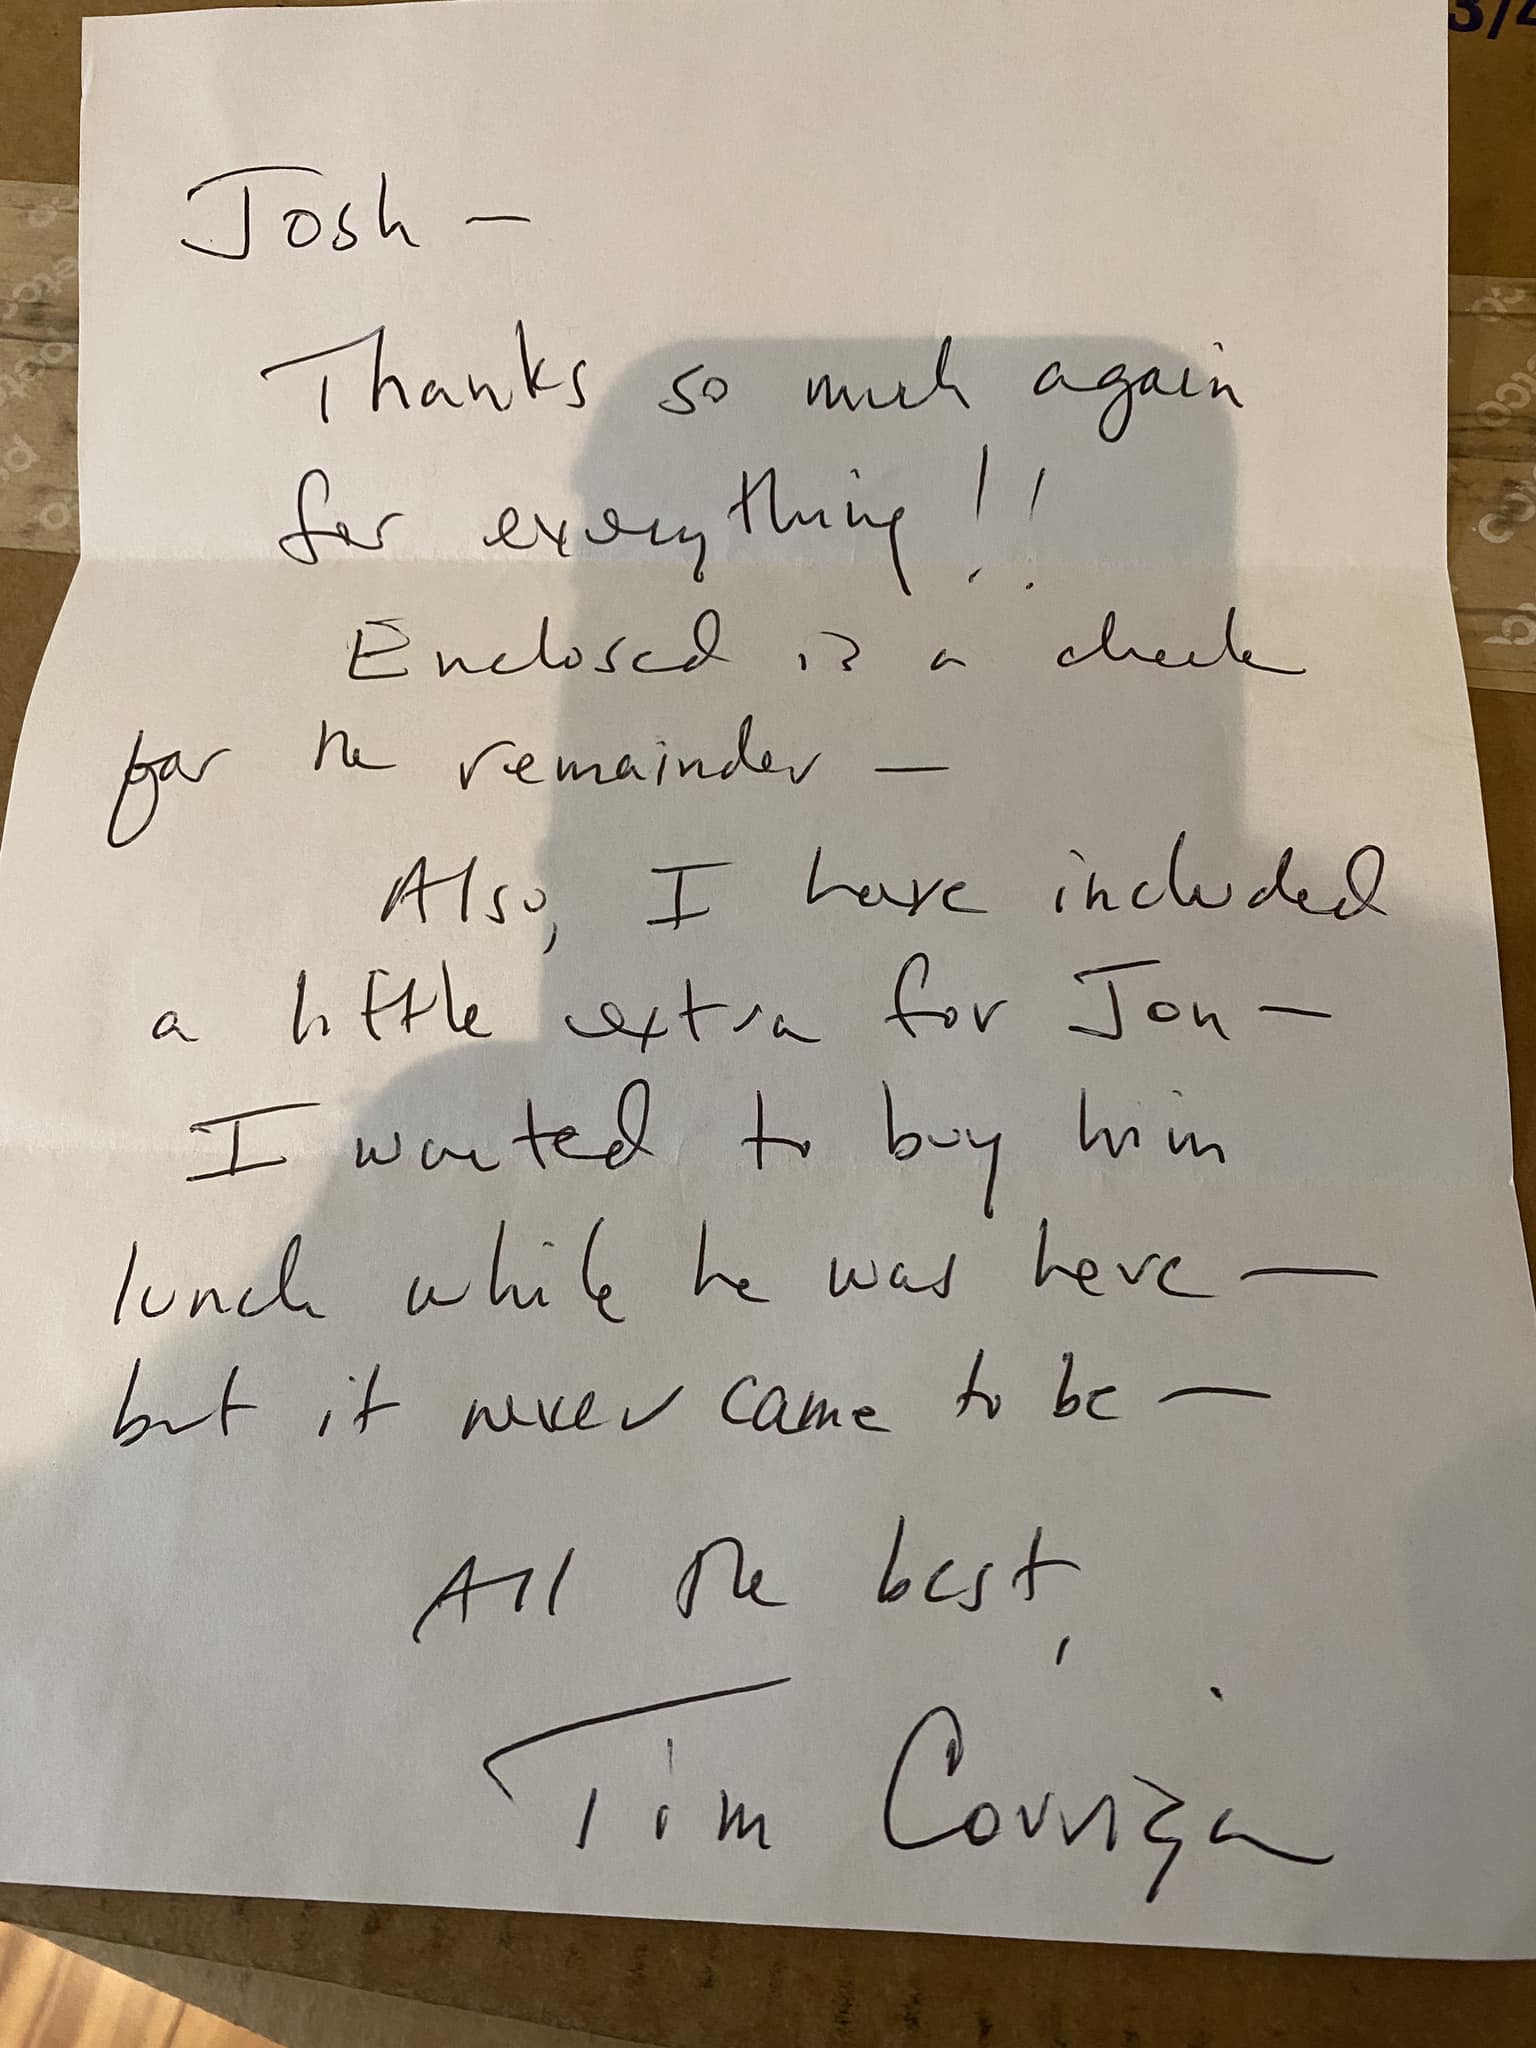 3/4
Josh —
Thanks so much again
for everything!!
Enclosed is a check
for the remainder —
Also, I have included
a little extra for Jon —
I wanted to buy him
lunch while he was here —
but it never came to be —
All the best,
Tim Corrigan
petco
petco